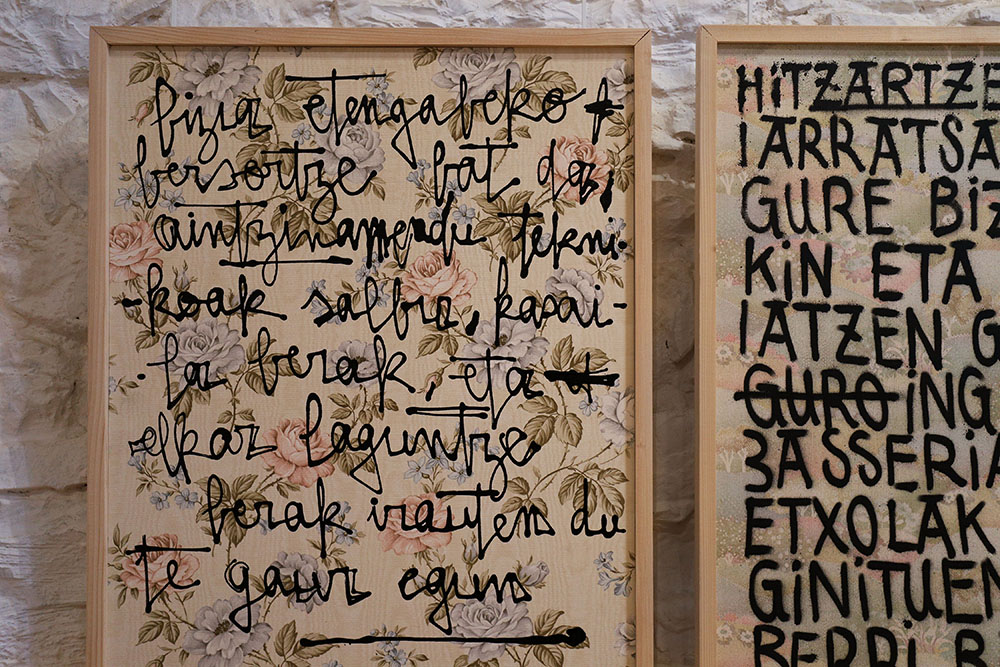 bizia etengabeko
bersortze bat da,
aintzinamendu tekni-
-koak salbu, kasai-
-la berak, eta
elkar laguntze
berak irauten du
te gaur egun
HiTZARTZE
IARRATSA
GURE BiZ
KiN ETA
IATZEN G
GURO iNG
BASSERiA
ETXOLAK
GiNiTUEN